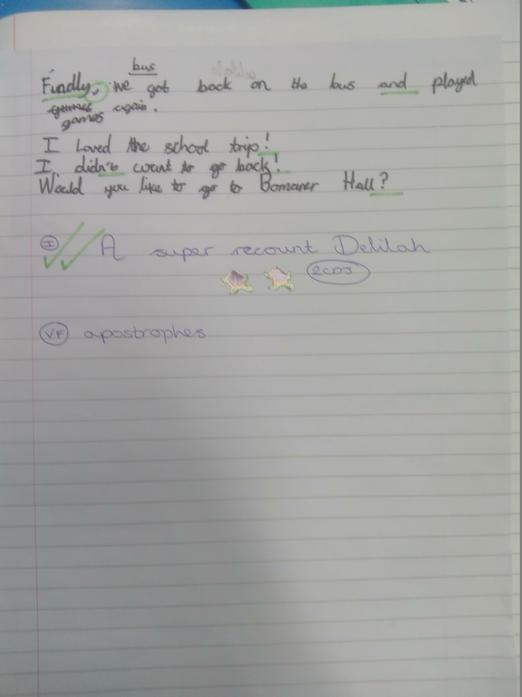 bus
Findly, we got back on the bus and played
games again.
I Loved the school trip!
I didn't want to go back!
Would you like to go to Bomaner Hall?
I A super recount Delilah
2COS
VF apostrophes